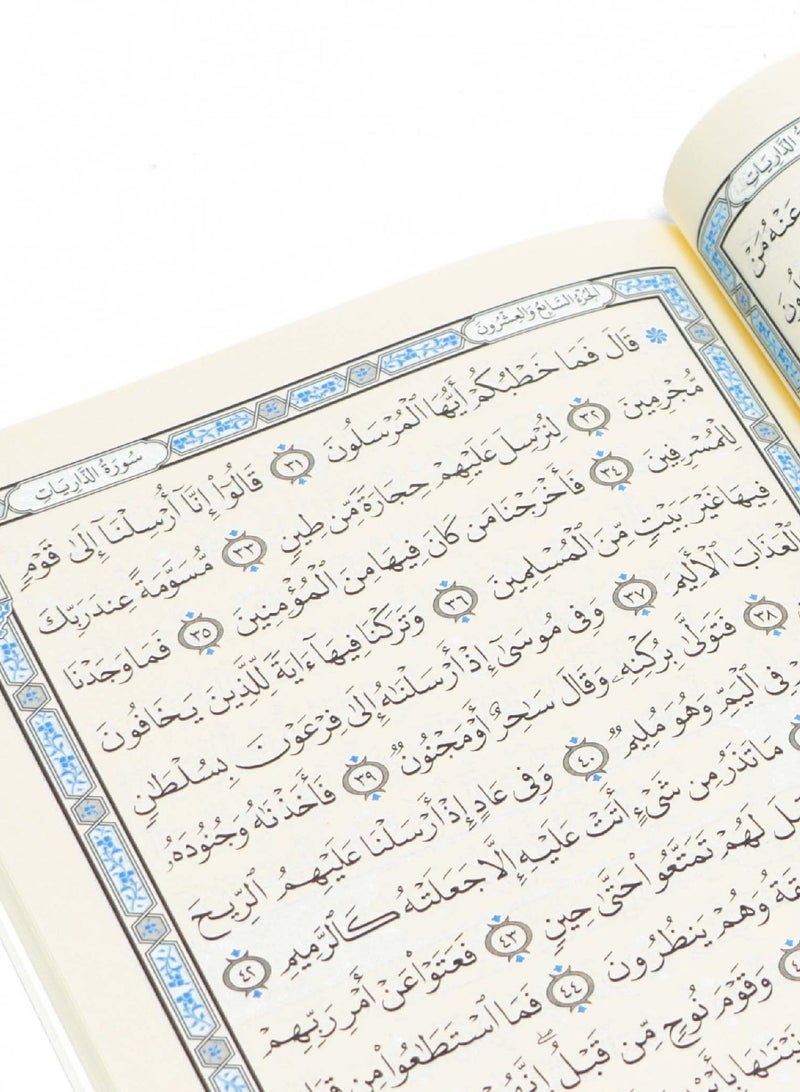 الجُزْءُ السَّابِعُ وَالعِشْرُونَ
سُورَةُ الذَّارِيَاتِ
۞ قَالَ فَمَا خَطْبُكُمْ أَيُّهَا ٱلْمُرْسَلُونَ ٣١ قَالُوٓا۟ إِنَّآ أُرْسِلْنَآ إِلَىٰ قَوْمٍ
مُّجْرِمِينَ ٣٢ لِنُرْسِلَ عَلَيْهِمْ حِجَارَةً مِّن طِينٍ ٣٣ مُّسَوَّمَةً عِندَ رَبِّكَ
لِلْمُسْرِفِينَ ٣٤ فَأَخْرَجْنَا مَن كَانَ فِيهَا مِنَ ٱلْمُؤْمِنِينَ ٣٥ فَمَا وَجَدْنَا
فِيهَا غَيْرَ بَيْتٍ مِّنَ ٱلْمُسْلِمِينَ ٣٦ وَتَرَكْنَا فِيهَآ ءَايَةً لِّلَّذِينَ يَخَافُونَ
ٱلْعَذَابَ ٱلْأَلِيمَ ٣٧ وَفِى مُوسَىٰٓ إِذْ أَرْسَلْنَٰهُ إِلَىٰ فِرْعَوْنَ بِسُلْطَٰنٍ
٣٨ فَتَوَلَّىٰ بِرُكْنِهِۦ وَقَالَ سَٰحِرٌ أَوْ مَجْنُونٌ ٣٩ فَأَخَذْنَٰهُ وَجُنُودَهُۥ
فِى ٱلْيَمِّ وَهُوَ مُلِيمٌ ٤٠ وَفِى عَادٍ إِذْ أَرْسَلْنَا عَلَيْهِمُ ٱلرِّيحَ
مَا تَذَرُ مِن شَىْءٍ أَتَتْ عَلَيْهِ إِلَّا جَعَلَتْهُ كَٱلرَّمِيمِ ٤٢
لَهُمْ تَمَتَّعُوا۟ حَتَّىٰ حِينٍ ٤٣ فَعَتَوْا۟ عَنْ أَمْرِ رَبِّهِمْ
وَهُمْ يَنظُرُونَ ٤٤ فَمَا ٱسْتَطَٰعُوا۟ مِن
وَقَوْمَ نُوحٍ مِّن قَبْلُ إِنَّهُمْ
سُورَةُ الذَّارِيَاتِ
عَنْهُ مَنْ